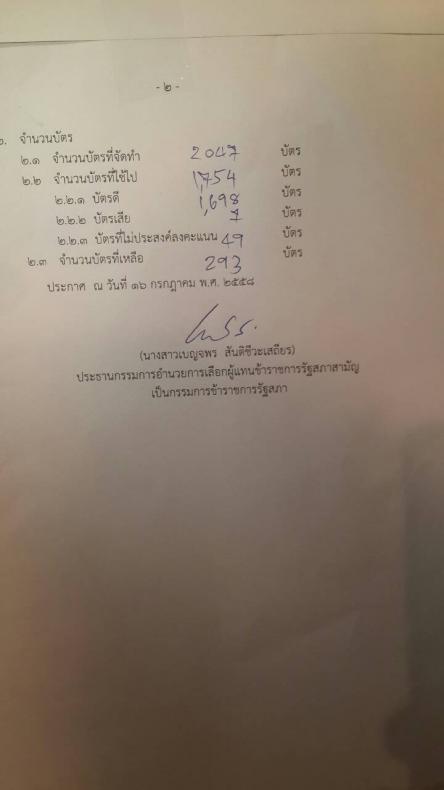 - ๒ -
๒. จำนวนบัตร
๒.๑ จำนวนบัตรที่จัดทำ 2047 บัตร
๒.๒ จำนวนบัตรที่ใช้ไป 1,754 บัตร
๒.๒.๑ บัตรดี 1,698 บัตร
๒.๒.๒ บัตรเสีย 7 บัตร
๒.๒.๓ บัตรที่ไม่ประสงค์ลงคะแนน 49 บัตร
๒.๓ จำนวนบัตรที่เหลือ 293 บัตร
ประกาศ ณ วันที่ ๑๖ กรกฎาคม พ.ศ. ๒๕๕๘
(นางสาวเบญจพร สันติชีวะเสถียร)
ประธานกรรมการอำนวยการเลือกผู้แทนข้าราชการรัฐสภาสามัญ
เป็นกรรมการข้าราชการรัฐสภา